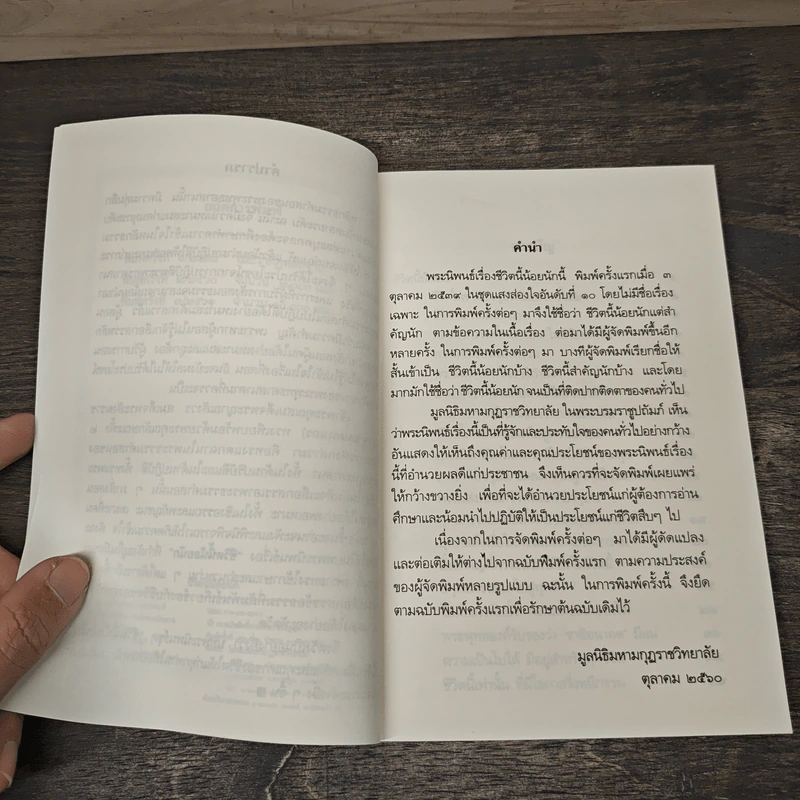 คำนำ
พระนิพนธ์เรื่องชีวิตนี้น้อยนักนี้ พิมพ์ครั้งแรกเมื่อ ๓
ตุลาคม ๒๕๓๙ ในชุดแสงส่องใจอันดับที่ ๑๐ โดยไม่มีชื่อเรื่อง
เฉพาะ ในการพิมพ์ครั้งต่อๆ มาจึงใช้ชื่อว่า ชีวิตนี้น้อยนักแต่สำ
คัญนัก ตามข้อความในเนื้อเรื่อง ต่อมาได้มีผู้จัดพิมพ์ขึ้นอีก
หลายครั้ง ในการพิมพ์ครั้งต่อๆ มา บางทีผู้จัดพิมพ์เรียกชื่อให้
สั้นเข้าเป็น ชีวิตนี้น้อยนักบ้าง ชีวิตนี้สำคัญนักบ้าง และโดย
มากมักใช้ชื่อว่า ชีวิตนี้น้อยนัก จนเป็นที่ติดปากติดตาของคนทั่วไป
มูลนิธิมหามกุฏราชวิทยาลัย ในพระบรมราชูปถัมภ์ เห็น
ว่าพระนิพนธ์เรื่องนี้เป็นที่รู้จักและประทับใจของคนทั่วไปอย่างกว้าง
อันแสดงให้เห็นถึงคุณค่าและคุณประโยชน์ของพระนิพนธ์เรื่อง
นี้ที่อำนวยผลดีแก่ประชาชน จึงเห็นควรที่จะจัดพิมพ์เผยแพร่
ให้กว้างขวางยิ่ง เพื่อที่จะได้อำนวยประโยชน์แก่ผู้ต้องการอ่าน
ศึกษาและน้อมนำไปปฏิบัติให้เป็นประโยชน์แก่ชีวิตสืบๆ ไป
เนื่องจากในการจัดพิมพ์ครั้งต่อๆ มาได้มีผู้ดัดแปลง
และต่อเติมให้ต่างไปจากฉบับพิมพ์ครั้งแรก ตามความประสงค์
ของผู้จัดพิมพ์หลายรูปแบบ ฉะนั้น ในการพิมพ์ครั้งนี้ จึงยึด
ตามฉบับพิมพ์ครั้งแรกเพื่อรักษาต้นฉบับเดิมไว้
มูลนิธิมหามกุฏราชวิทยาลัย
ตุลาคม ๒๕๖๐